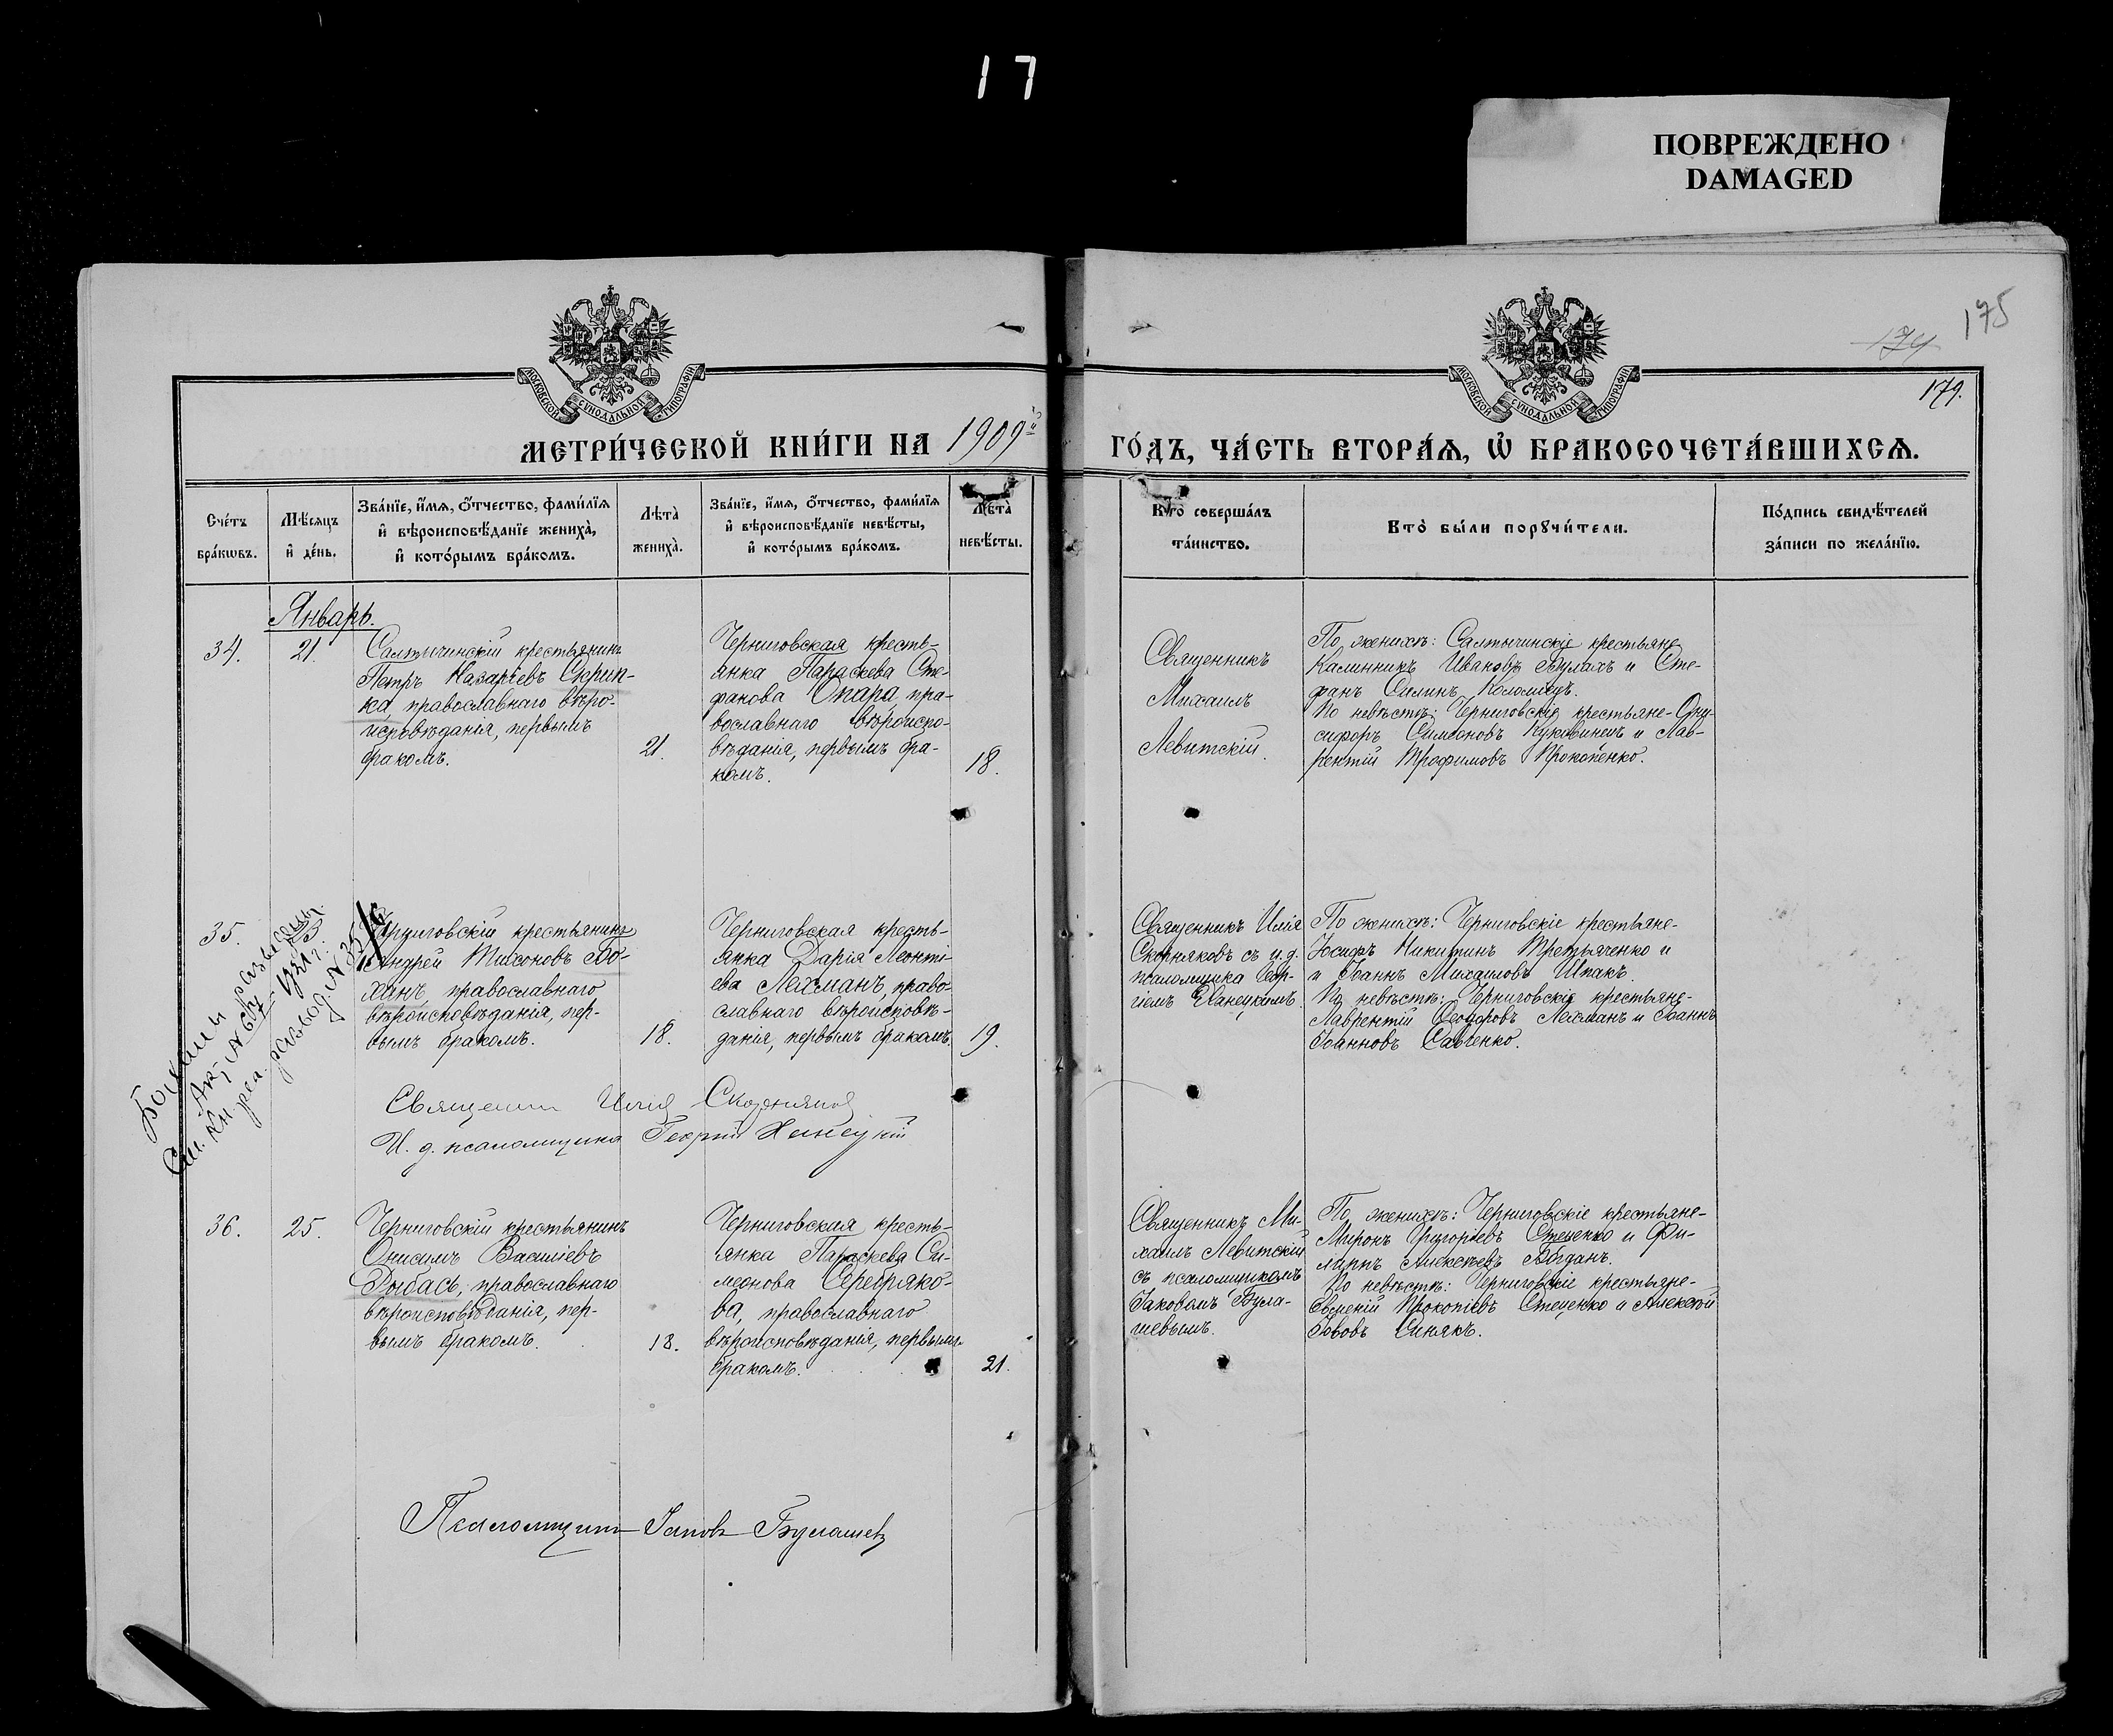 17
ПОВРЕЖДЕНО
DAMAGED
175
174
179.
МОСКОВСКОЙ СѴНОДАЛЬНОЙ ТИПОГРАФІИ
МОСКОВСКОЙ СѴНОДАЛЬНОЙ ТИПОГРАФІИ
МЕТРИ́ЧЕСКОЙ КНИ́ГИ НА 1909й
ГО́ДЪ, ЧА́СТЬ ВТОРА́Ѧ, Ѡ БРАКОСОЧЕТА́ВШИХСѦ.
Сче́тъ
бра́кѡвъ.
Мѣ́сяцъ
и҆ де́нь.
Зва́нїе, и҆́мѧ, ѻ҆́тчество, фами́лїѧ
и҆ вѣроисповѣ́данїе жениха̀,
и҆ кото́рымъ бра́комъ.
Лѣ́та̀
жениха̀.
Зва́нїе, и҆́мѧ, ѻ҆́тчество, фами́лїѧ
и҆ вѣроисповѣ́данїе невѣ́сты,
и҆ кото́рымъ бра́комъ.
Лѣ́та̀
невѣ́сты.
Кто̀ соверша́лъ
та́инство.
Кто̀ бы́ли порꙋчи́тели.
По́дпись свидѣ́телей
за́писи по жела́нїю.
Январь.
34.
21.
Салтычинскій крестьянинъ
Петръ Назаріевъ Скрип-
ка, православнаго вѣро-
исповѣданія, первымъ
бракомъ.
21.
Черниговская кресть-
янка Параскева Сте-
фанова Опара, пра-
вославнаго вѣроиспо-
вѣданія, первымъ бра-
комъ.
18.
Священникъ
Михаилъ
Левитскій.
По женихѣ: Салтычинскіе крестьяне
Калинникъ Ивановъ Булахъ и Сте-
фанъ Силинъ Коломіецъ.
По невѣстѣ: Черниговскіе крестьяне-Они-
сифоръ Симеоновъ и Лав-
рентій Трофимовъ Прокопенко.
35.
23.
Черниговскій крестьянинъ
Андрей Тихоновъ Бо-
ханъ, православнаго
вѣроисповѣданія, пер-
вымъ бракомъ.
18.
Черниговская кресть-
янка Дарія Леонті-
ева Лахманъ, право-
славнаго вѣроисповѣ-
данія, первымъ бракомъ.
19.
Священникъ Илія
Скорняковъ съ и.д.
псаломщика Геор-
гіемъ
По женихѣ: Черниговскіе крестьяне-
Іосифъ Никитинъ Третьяченко и
и Іоаннъ Михаиловъ Шпакъ.
По невѣстѣ: Черниговскіе крестьяне-
Лаврентій Ѳеодоровъ Лахманъ и Іоаннъ
Іоанновъ Савченко.
Боханы разведены
См. Ак.
Кн. развод. №
Священникъ Илія Скорняковъ
И. д. псаломщика Георгій
36.
25.
Черниговскій крестьянинъ
Онисимъ Василіевъ
Дыбась, православнаго
вѣроисповѣданія, пер-
вымъ бракомъ.
18.
Черниговская кресть-
янка Параскева Си-
меонова Серебряко-
ва, православнаго
вѣроисповѣданія, первымъ
бракомъ.
21.
Священникъ Ми-
хаилъ Левитскій
съ псаломщикомъ
Іаковомъ Була-
шевымъ.
По женихѣ: Черниговскіе крестьяне-
Миронъ Григоріевъ Стеценко и Фи-
липпъ Алексѣевъ Богданъ.
По невѣстѣ: Черниговскіе крестьяне-
Евменій Прокопіевъ Стеценко и Алексѣй
Іововъ Синякъ.
Псаломщикъ Іаковъ Булашевъ